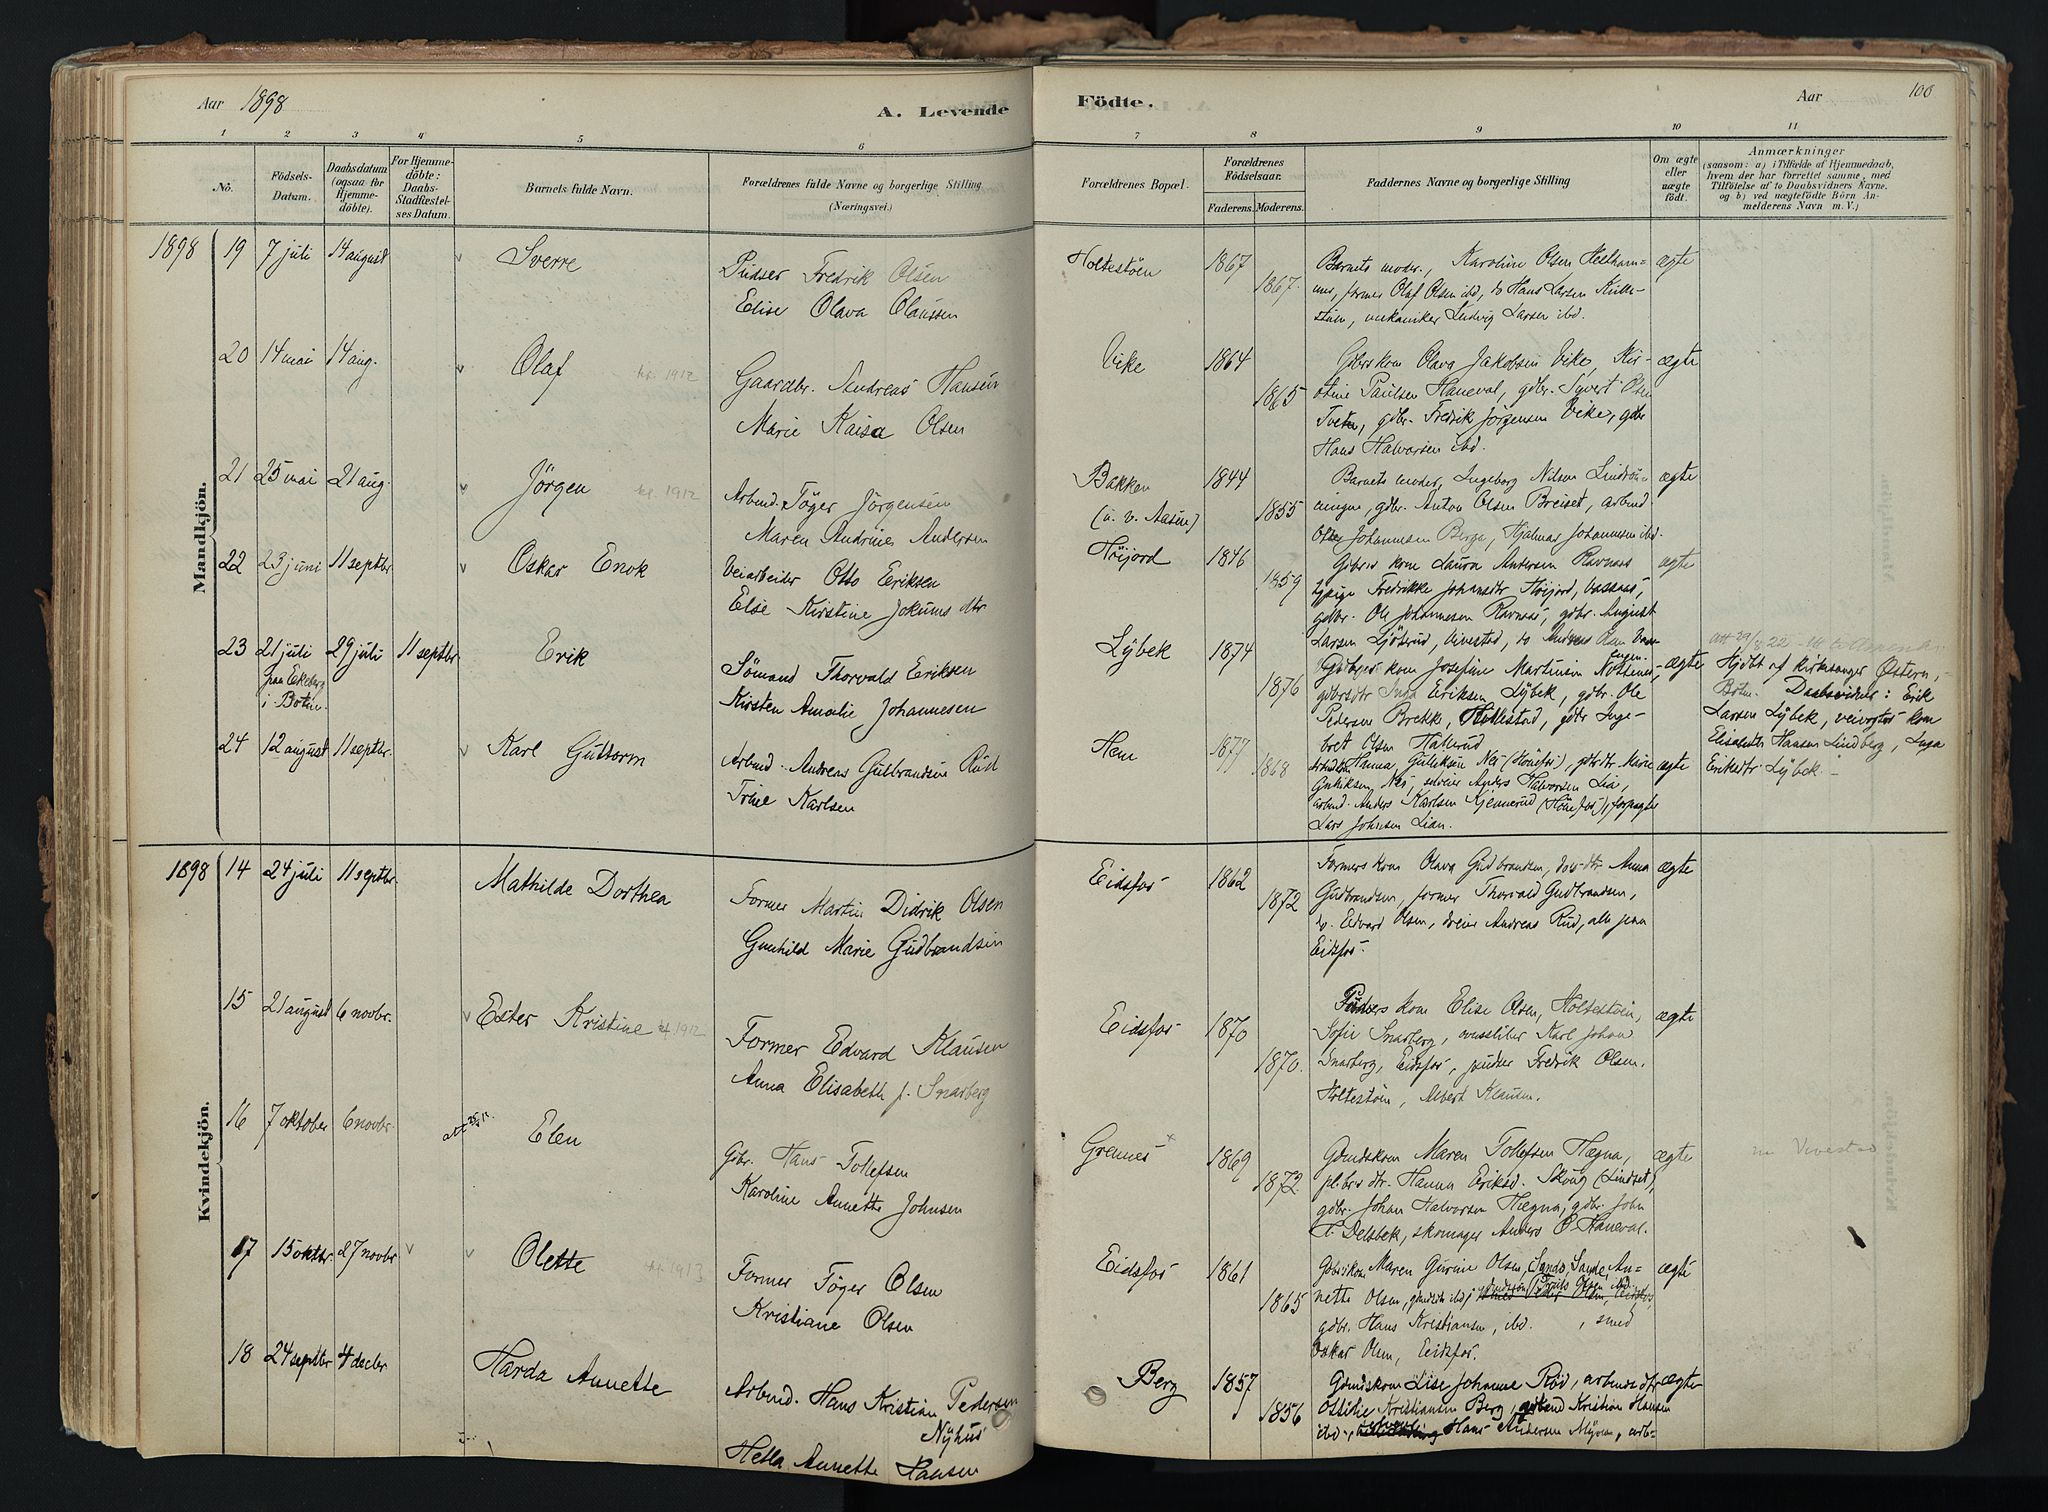 Aar 1898
A. Levende
Födte.
Aar
100
1 2 3 4 5 6 7 8 9 10 11
No.
Födsels-
Datum.
Daabsdatum
(ogsaa for
Hjemme-
döbte).
For Hjemme-
döbte:
Daabs-
Stadfæstel-
ses Datum.
Barnets fulde Navn.
Forældrenes fulde Navne og borgerlige Stilling
(Næringsvei.)
Forældrenes Bopæl.
Forældrenes
Födselsaar.
Faderens. Moderens.
Faddernes Navne og borgerlige Stilling
Om ægte
eller
uægte
födt.
Anmærkninger
(saasom: a) i Tilfælde af Hjemmedaab,
hvem der har forrettet samme, med
Tilföielse af to Daabsvidners Navne,
og b) ved uægtefödte Börn An-
melderens Navn m. V.)
Mandkjön.
1898 19 7 juli 14 august Sverre
Pudser Fredrik Olsen
Elise Olava Olaussen
Holtestöen 1867 1867.
Barnets moder, Karoline Olsen
former Olaf Olsen ibd, do Hans Larsen
mekaniker Ludvig Larsen ibd.
ægte
20 14 mai 14 aug. Olaf kf. 1912
Gaardbr. Andreas Hansen
Marie Kaisa Olsen
Vike 1864 1865
Gdbrskom Olava Jakobsen Vike, Kir-
stine Paulsen Haneval, gdbr. Syvert Olsen
Tveten, gdbr. Fredrik Jörgensen Vike, gdbr
Hans Halvorsen ibd.
ægte
21 25 mai 21 aug. Jörgen kf. 1912
Arbmd. Töger Jörgensen
Maren Andrine Andersen
Bakken
(u. v. Aasen)
1844 1855
Barnets moder, Ingeborg Nilsen
gdbr. Anton Olsen Breiset, arbmd
Johannesen Berga, Hjalmar Johannesen ibd.
ægte
22 23 juni 11 septbr. Oskar Enok
Veiarbeider Otto Eriksen
Else Kirstine Jokumsdtr
Höijord 1846 1859
Gdbrs kom Laura Andersen Ravnaas
Fredrikke Johansdtr Höijord,
gdbr. Ole Johannesen Ravnaas, gdbr. August
Larsen
ægte
23 21 juli
paa Ekeberg
i Botne.
29 juli 11 septbr Erik
Sömand Thorvald Eriksen
Kirsten Amalie Johannesen
Lybek 1874 1876
Gdbrs kom Josefine Martinsen
Inga Eriksen Lybek, gdbr. Ole
Pedersen Brekke, Hillestad, gdbr Inge-
bret Olsen Hallerud
ægte
Hjdbt af kirkesanger Østern,
Botne. Daabsvidner: Erik
Larsen Lybek, kom
Elisabeth Hansen Lindberg, Inga
Eriksdtr Lybek.
24 12 august 11 septbr. Karl Guttorm
Arbmd. Andreas Gulbrandsen Rud
Trine Karlsen
Hem 1877 1868
Hanna Gulliksen Nes (Hönefos),
Gulliksen Nes, Anders Halvorsen Lia,
arbmd. Anders Karlsen Kjennerud (Hönefos), forpagter
Lars Johnsen Lian.
ægte
Kvindekjön.
1898 14 24 juli 11 septbr. Mathilde Dorthea
Former Martin Didrik Olsen
Gunhild Marie Gudbrandsen
Eidsfos 1862 1872
Formers kom Olava Gudbrandsen, Anna
Gudbrandsen, former Thorvald Gudbrandsen,
do. Edvard Olsen, dreier Andreas Rud, alle paa
Eidsfos.
ægte
15 21 august 6 novbr. Ester Kristine kf 1912
Former Edvard Klausen
Anna Elisabeth f. Snarberg
Eidsfos 1870 1870.
Pudsers kom Elise Olsen, Holtestöen,
Sofie Snarberg, Karl Johan
Snarberg, Eidsfos, pudser Fredrik Olsen.
Holtestöen, Albert Klausen.
ægte
16 7 oktober 6 novbr. Elen
Gbr. Hans Tollefsen
Karoline Annette Johnsen
Grennes 1869 1872
Gdmdskom Maren Tollefsen Hægna,
dtr. Hanna Eriksd. Skoug (Lindset),
gdbr. Johan Halvorsen Hægna, gdbr. John
P. Delebek, skomager Anders P. Haneval.
ægte
Vivestad
17 15 oktbr. 27 novbr Olette kf. 1913
Former Töger Olsen
Kristiane Olsen
Eidsfos 1861 1865
Gdbrskom Maren Gurine Olsen, Sande, An-
nette Olsen,
gdbr. Hans Kristiansen, ibd. , smed
Oskar Olsen, Eidsfos.
ægte
18 24 septbr 4 decbr. Harda Annette
Arbmd. Hans Kristian Pedersen
Nyhus
Hella Annette Hansen
Berg 1857 1856
Gdmdskom Lise Johanne Röd, arbmds dtr
Ottilie Kristiansen Berg, Kristian Hansen
ibd., Hans Andersen Myren, arb-
ægte